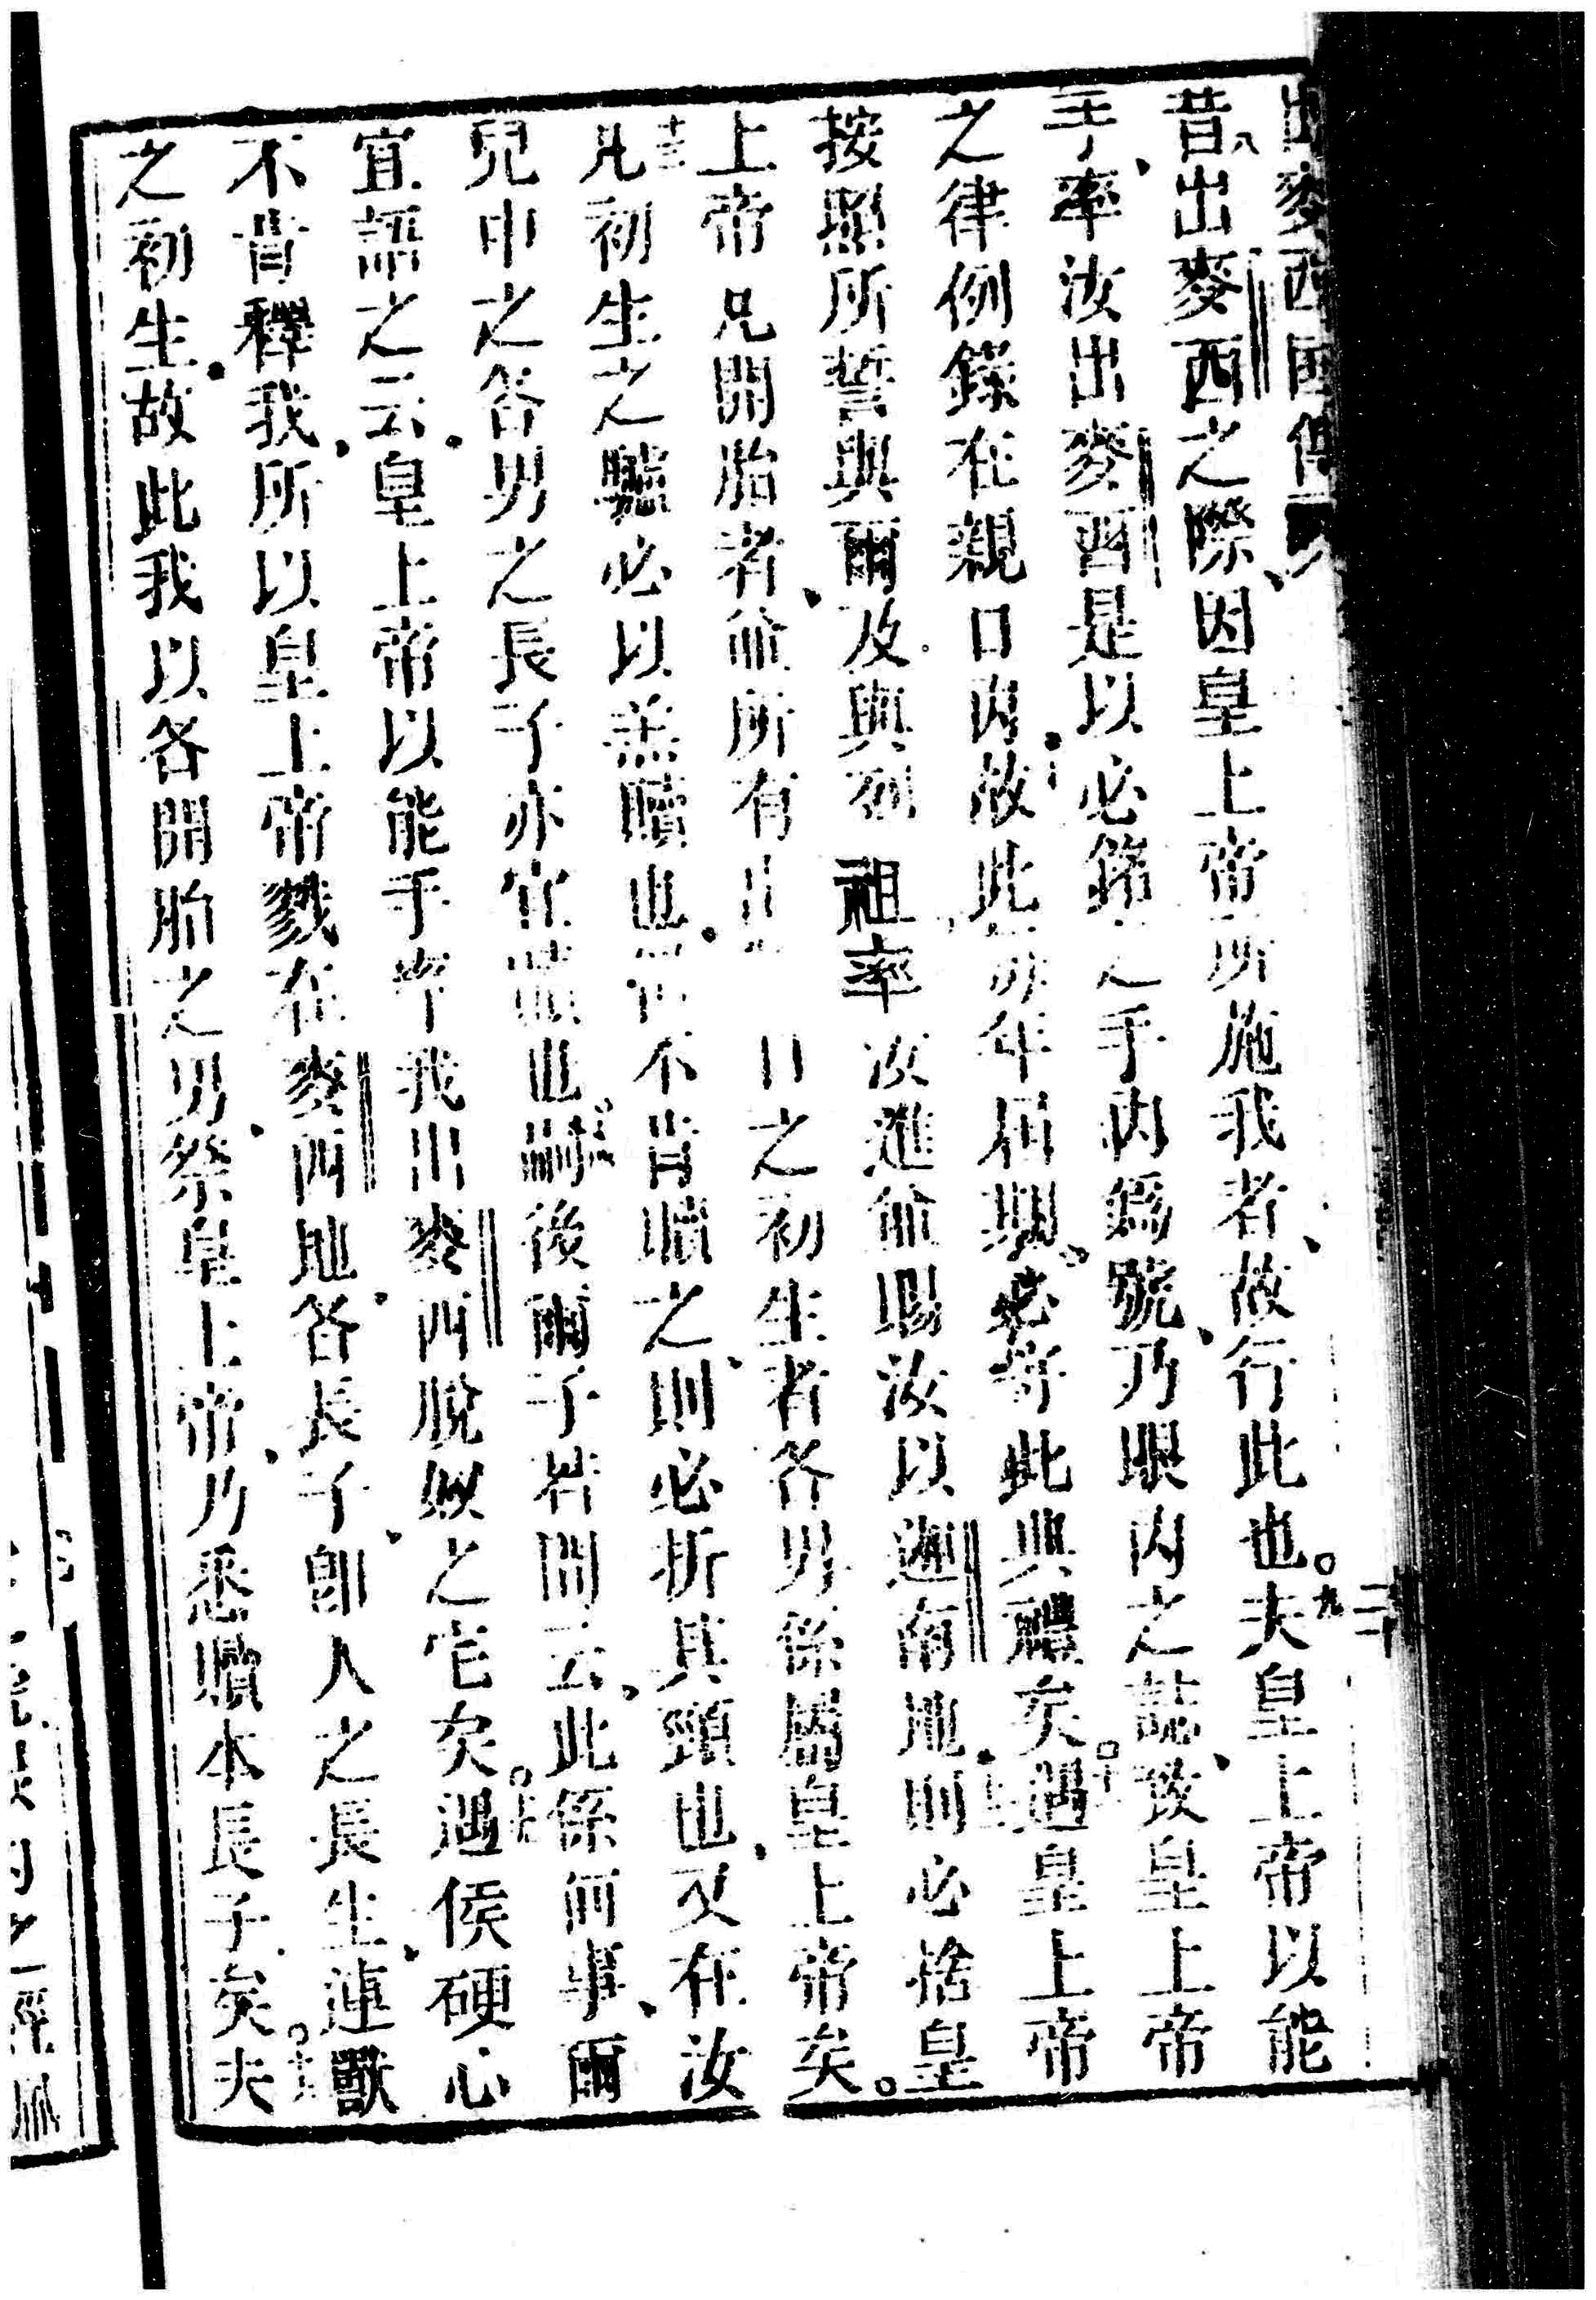 昔出麥西之際、因皇上帝所施我者、故行此也。○九夫皇上帝以能
手、率汝出麥西、是以必銘之手內爲號、乃眼內之誌、致皇上帝
之律例錄在親口內、故此年年屆期、必守此典禮矣。○遇皇上帝
按照所誓與爾及與列祖率汝進而賜汝以迦南地、則必捨皇
上帝凡開胎者、並所有之初生者、各男係屬皇上帝矣。○
十三凡初生之驢、必以羔贖也。不肯贖之、則必折其頸也、又在汝
兒中之各男之長子、亦宜贖也。嗣後爾子若問云、此係何事、爾
宜語之云、皇上帝以能手率我出麥西脫奴之宅矣。○遇侯硬心
不肯釋我、所以皇上帝戮在麥西地、各長子、卽人之長生、連獸
之初生。故此我以各開胎之男、祭皇上帝、乃悉贖本長子矣。○夫